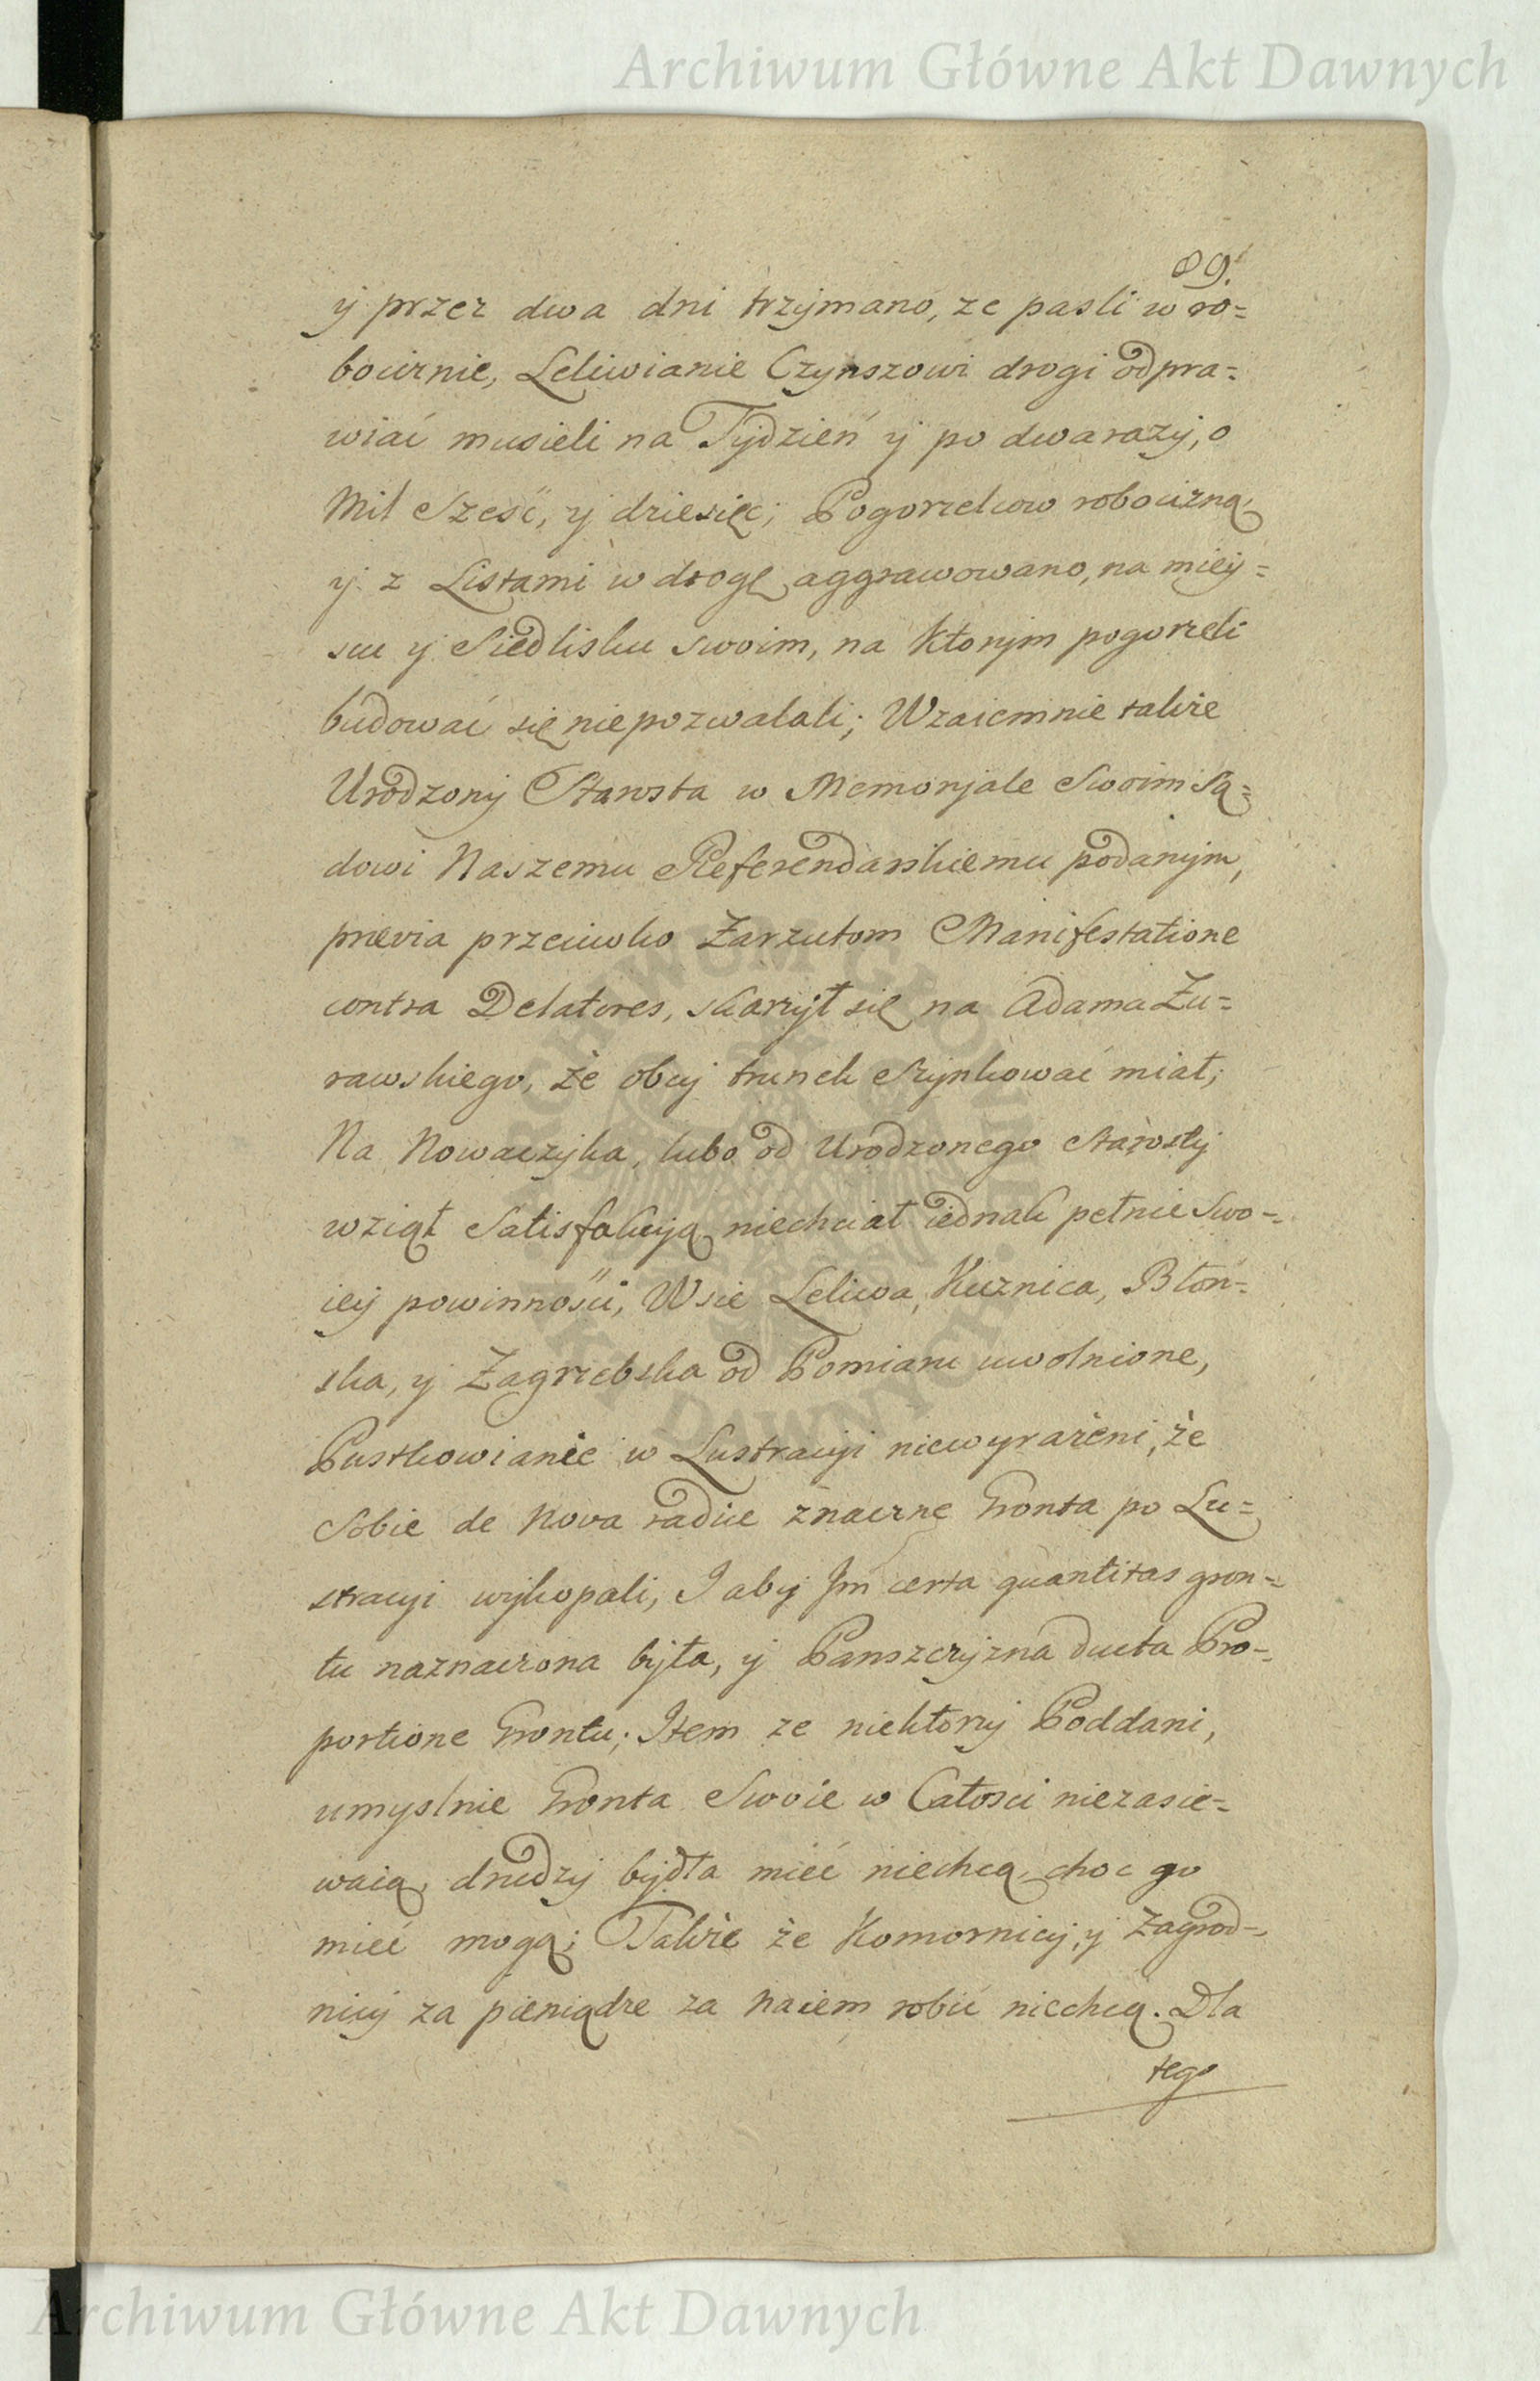 Archiwum Główne Akt Dawnych
89.
ÿ przez dwa dni trzÿmano, ze pasli w ro=
bociznie, Leliwianie Czynszowi drogi odpra=
wiać musieli na Tÿdzień ÿ po dwarazÿ, o
Mil Sześć, ÿ dziesięć; Pogorzelcow robocizną
ÿ z Listami w drogę aggrawowano, na mieÿ=
scu ÿ Siedlisku swoim, na ktorÿm pogorzeli
budować się niepozwalali; Wzaiemnie także
Urodzonÿ Starosta w Memorÿale Swoim Są=
dowi Naszemu Referendarskiemu podanÿm,
prævia przeciwko Zarzutom Manifestatione
contra Delatores, skarzÿł się na Adama Żu=
rawskiego, że obcÿ trunek Szÿnkować miał;
Na Nowaczÿka, lubo od Urodzonego Starostÿ
wziął Satisfakcÿą niechciał iednak pełnić Swo=
ieÿ powinności, Wsie Leliwa, Kuznica, Błoń=
ska, ÿ Zagrzebska od Pomiaru uwolnione,
Pustkowianie w Lustracÿi niewyrażeni, że
Sobie de Nova radice znaczne Gronta po Lu=
stracÿi wÿkopali, I abÿ Im certa quantitas gron=
tu naznaczona bÿła, ÿ Panszczÿzna ducta Pro=
portione Grontu; Item ze niektorzÿ Poddani,
umyslnie Gronta Swoie w Całosci niezasie=
waią, drudzÿ bÿdła mieć niechcą, choc go
mieć mogą; Także że Komornicÿ, ÿ Zagrod=
nicÿ za pieniądze za Naiem robić niechcą. Dla
tego
Archiwum Główne Akt Dawnych